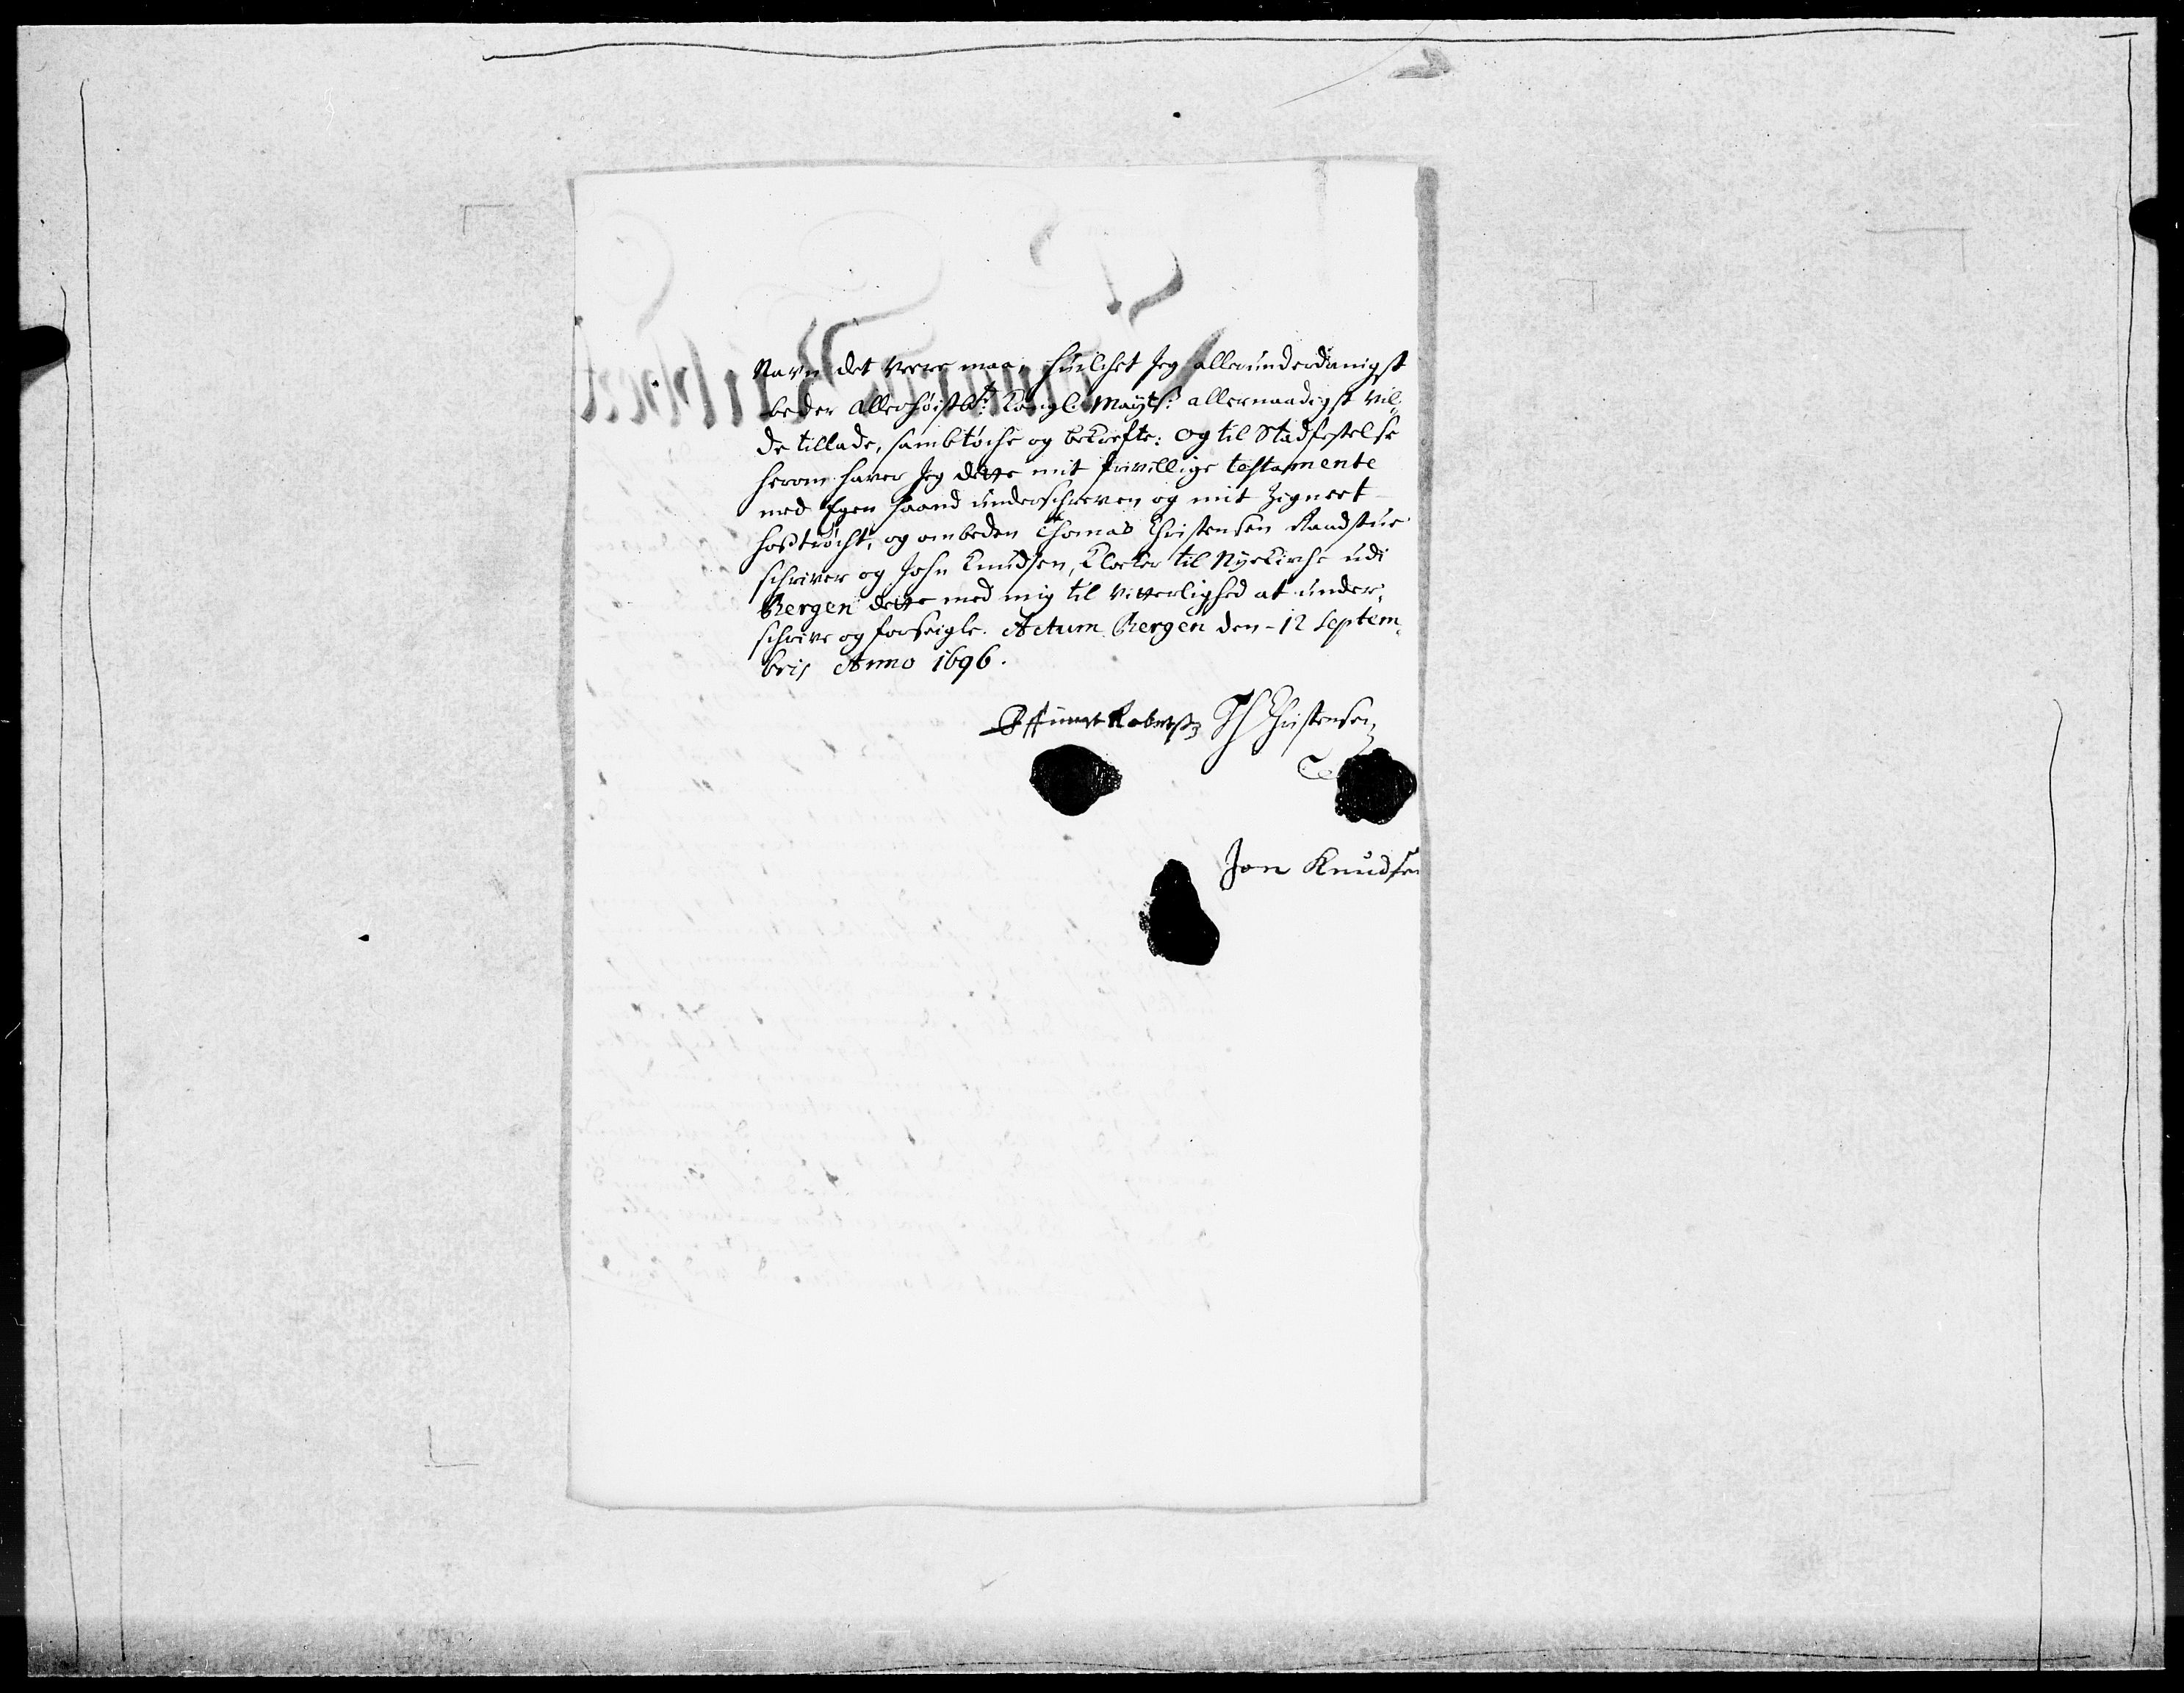 Navn det være maa, hvilchet Jeg allerunderdanigst
beder allerhøistbt: Kongl: Mayts: allernaadigst vil,
de tillade, sambtøche og bekrefte: og til Stadfestelse
herom haver Jeg dette mit frivillige testamente
med Egen haand underschreven og mit Zigneet
hostrøcht, og ombeden Thomas Christensen Raadstue
schriver og John Knudsen, Klocker til Nyekirche udi
Bergen dette med mig til vitterlighed at under,
schrive og forseigle. Actum Bergen den - 12 Septem,
bris Anno 1696.
Th Christensen
Jon Knudsen